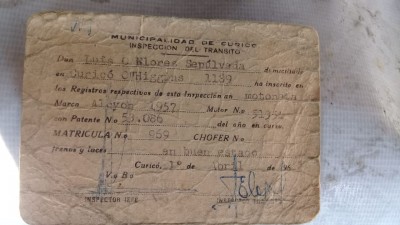 MUNICIPALIDAD DE CURICO
INSPECCION DEL TRANSITO
Don Luis C Flores Sepúlveda domiciliado
en Curicó O'Higgins 1189 ha inscrito en
los Registros respectivos de esta Inspección en
Marca 1957 Motor No
con Patente No 53.086 del año en curso
MATRICULA No 959 CHOFER No
frenos y luces en buen estado
Curicó, 1º de abril de
V.o B.o
INSPECTOR JEFE